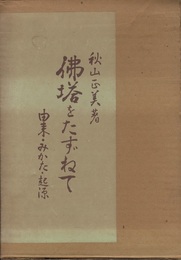 秋山正美著
佛塔をたずねて
由来・みかた・起源